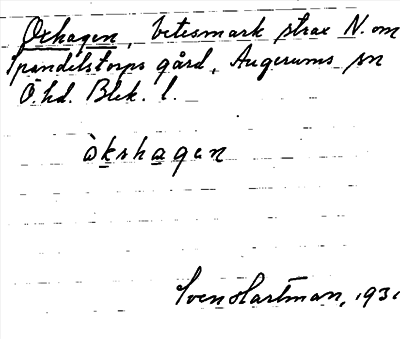 Oxhagen, betesmark strax N. om
Spandelstorps gård, Augerums sn
Ö. hd. Blek. l.
òkshagen
Sven Hartman, 1931